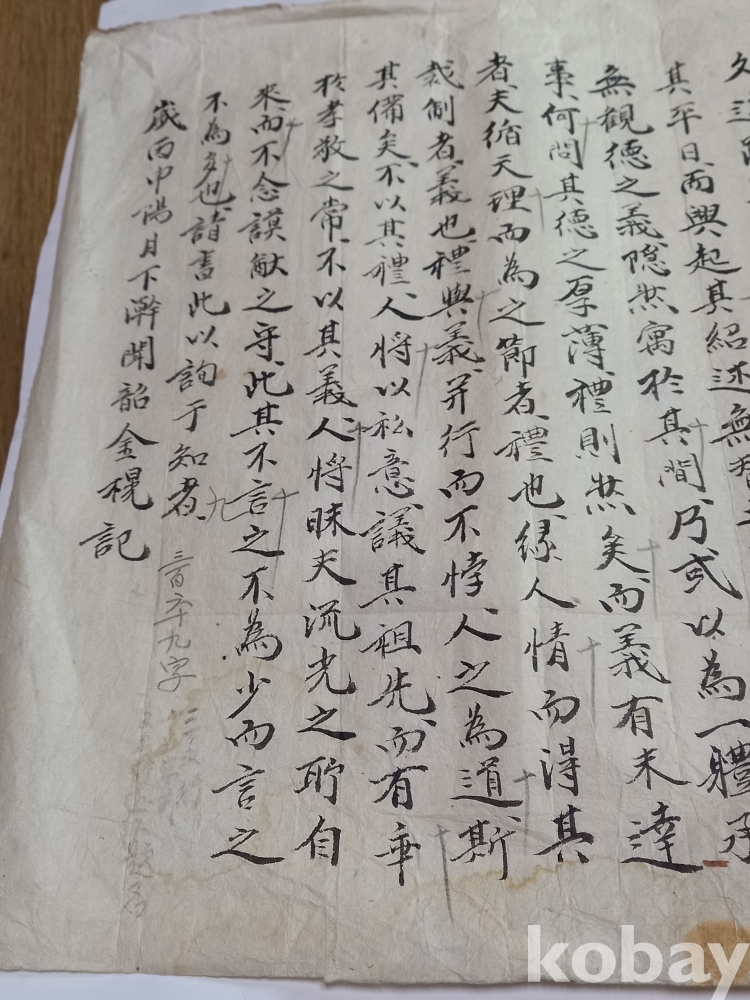 其平日而興起其紹述無
無觀德之義隱然寓於其間乃或以為一體
事何問其德之厚薄禮則然矣而義有未達
者夫循天理而為之節者禮也緣人情而得其
裁制者義也禮與義并行而不悖人之為道斯
其備矣不以其禮人將以私意議其祖先而有乖
於孝敬之常不以其義人將昧夫流光之所自
來而不念謨猷之守此其不言之不為少而言之
不為多也請書此以詢于知者
歲丙申陽月下澣聞韶金楻記
三百六十九字
kobay